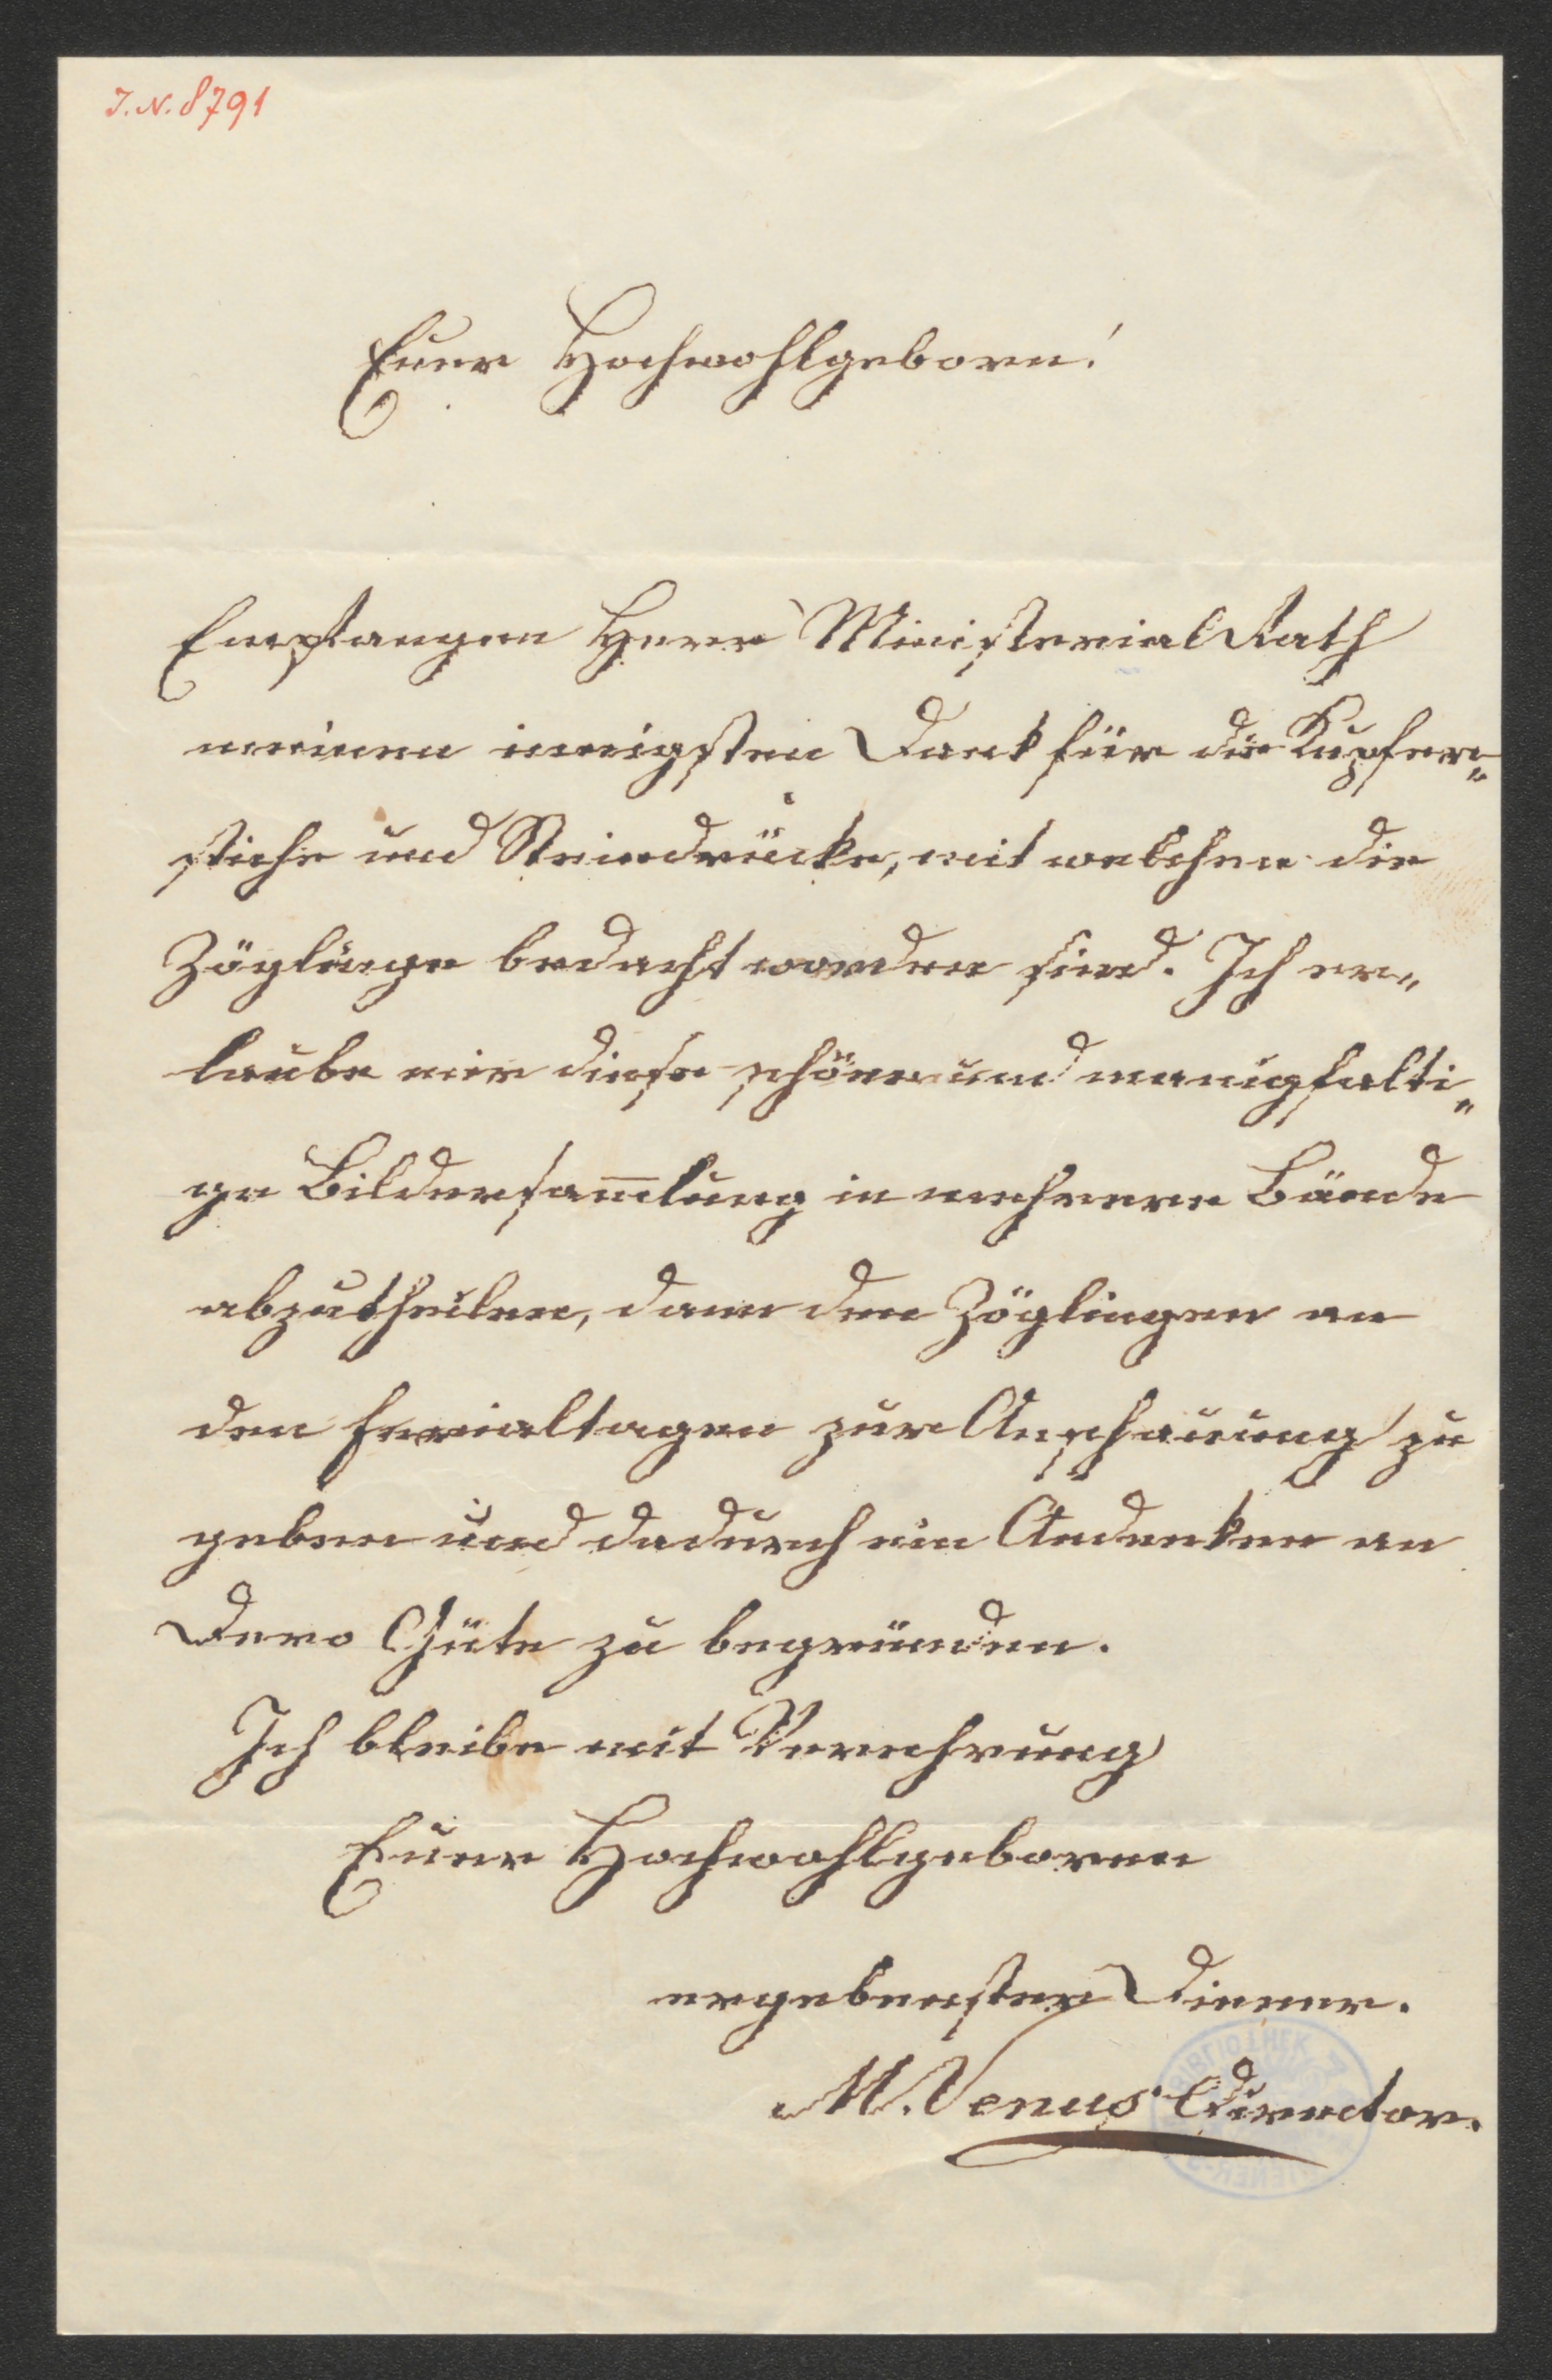 J.N. 8791
Euer Hochwohlgeborn!
Empfangen Herr Ministerial Rath
meinen innigsten Dank für die Kupfer„
stiche und Steindrücke, mit welchen die
Zöglinge bedacht worden sind. Ich er„
laube mir diese schöne und manigfalti„
ge Bildersam̅lung in mehrere Bände
abzutheilen, dann den Zöglingen an
den Ferialtagen zur Anschauung zu
geben und dadurch ein Andenken an
Dero Güte zu begründen.
Ich bleibe mit Verehrung
Euer Hochwohlgeboren
ergebenster Diener.
M. Venus Director.